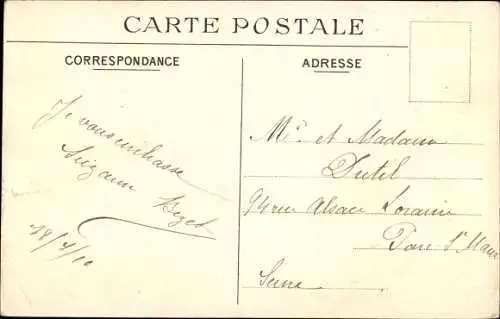 CARTE POSTALE
CORRESPONDANCE
ADRESSE
Je vous embrasse
Suzanne Bizet
18/4/10
Mr et Madame
Dutil
94 rue Alsace Lorraine
Parc St Maur
Seine